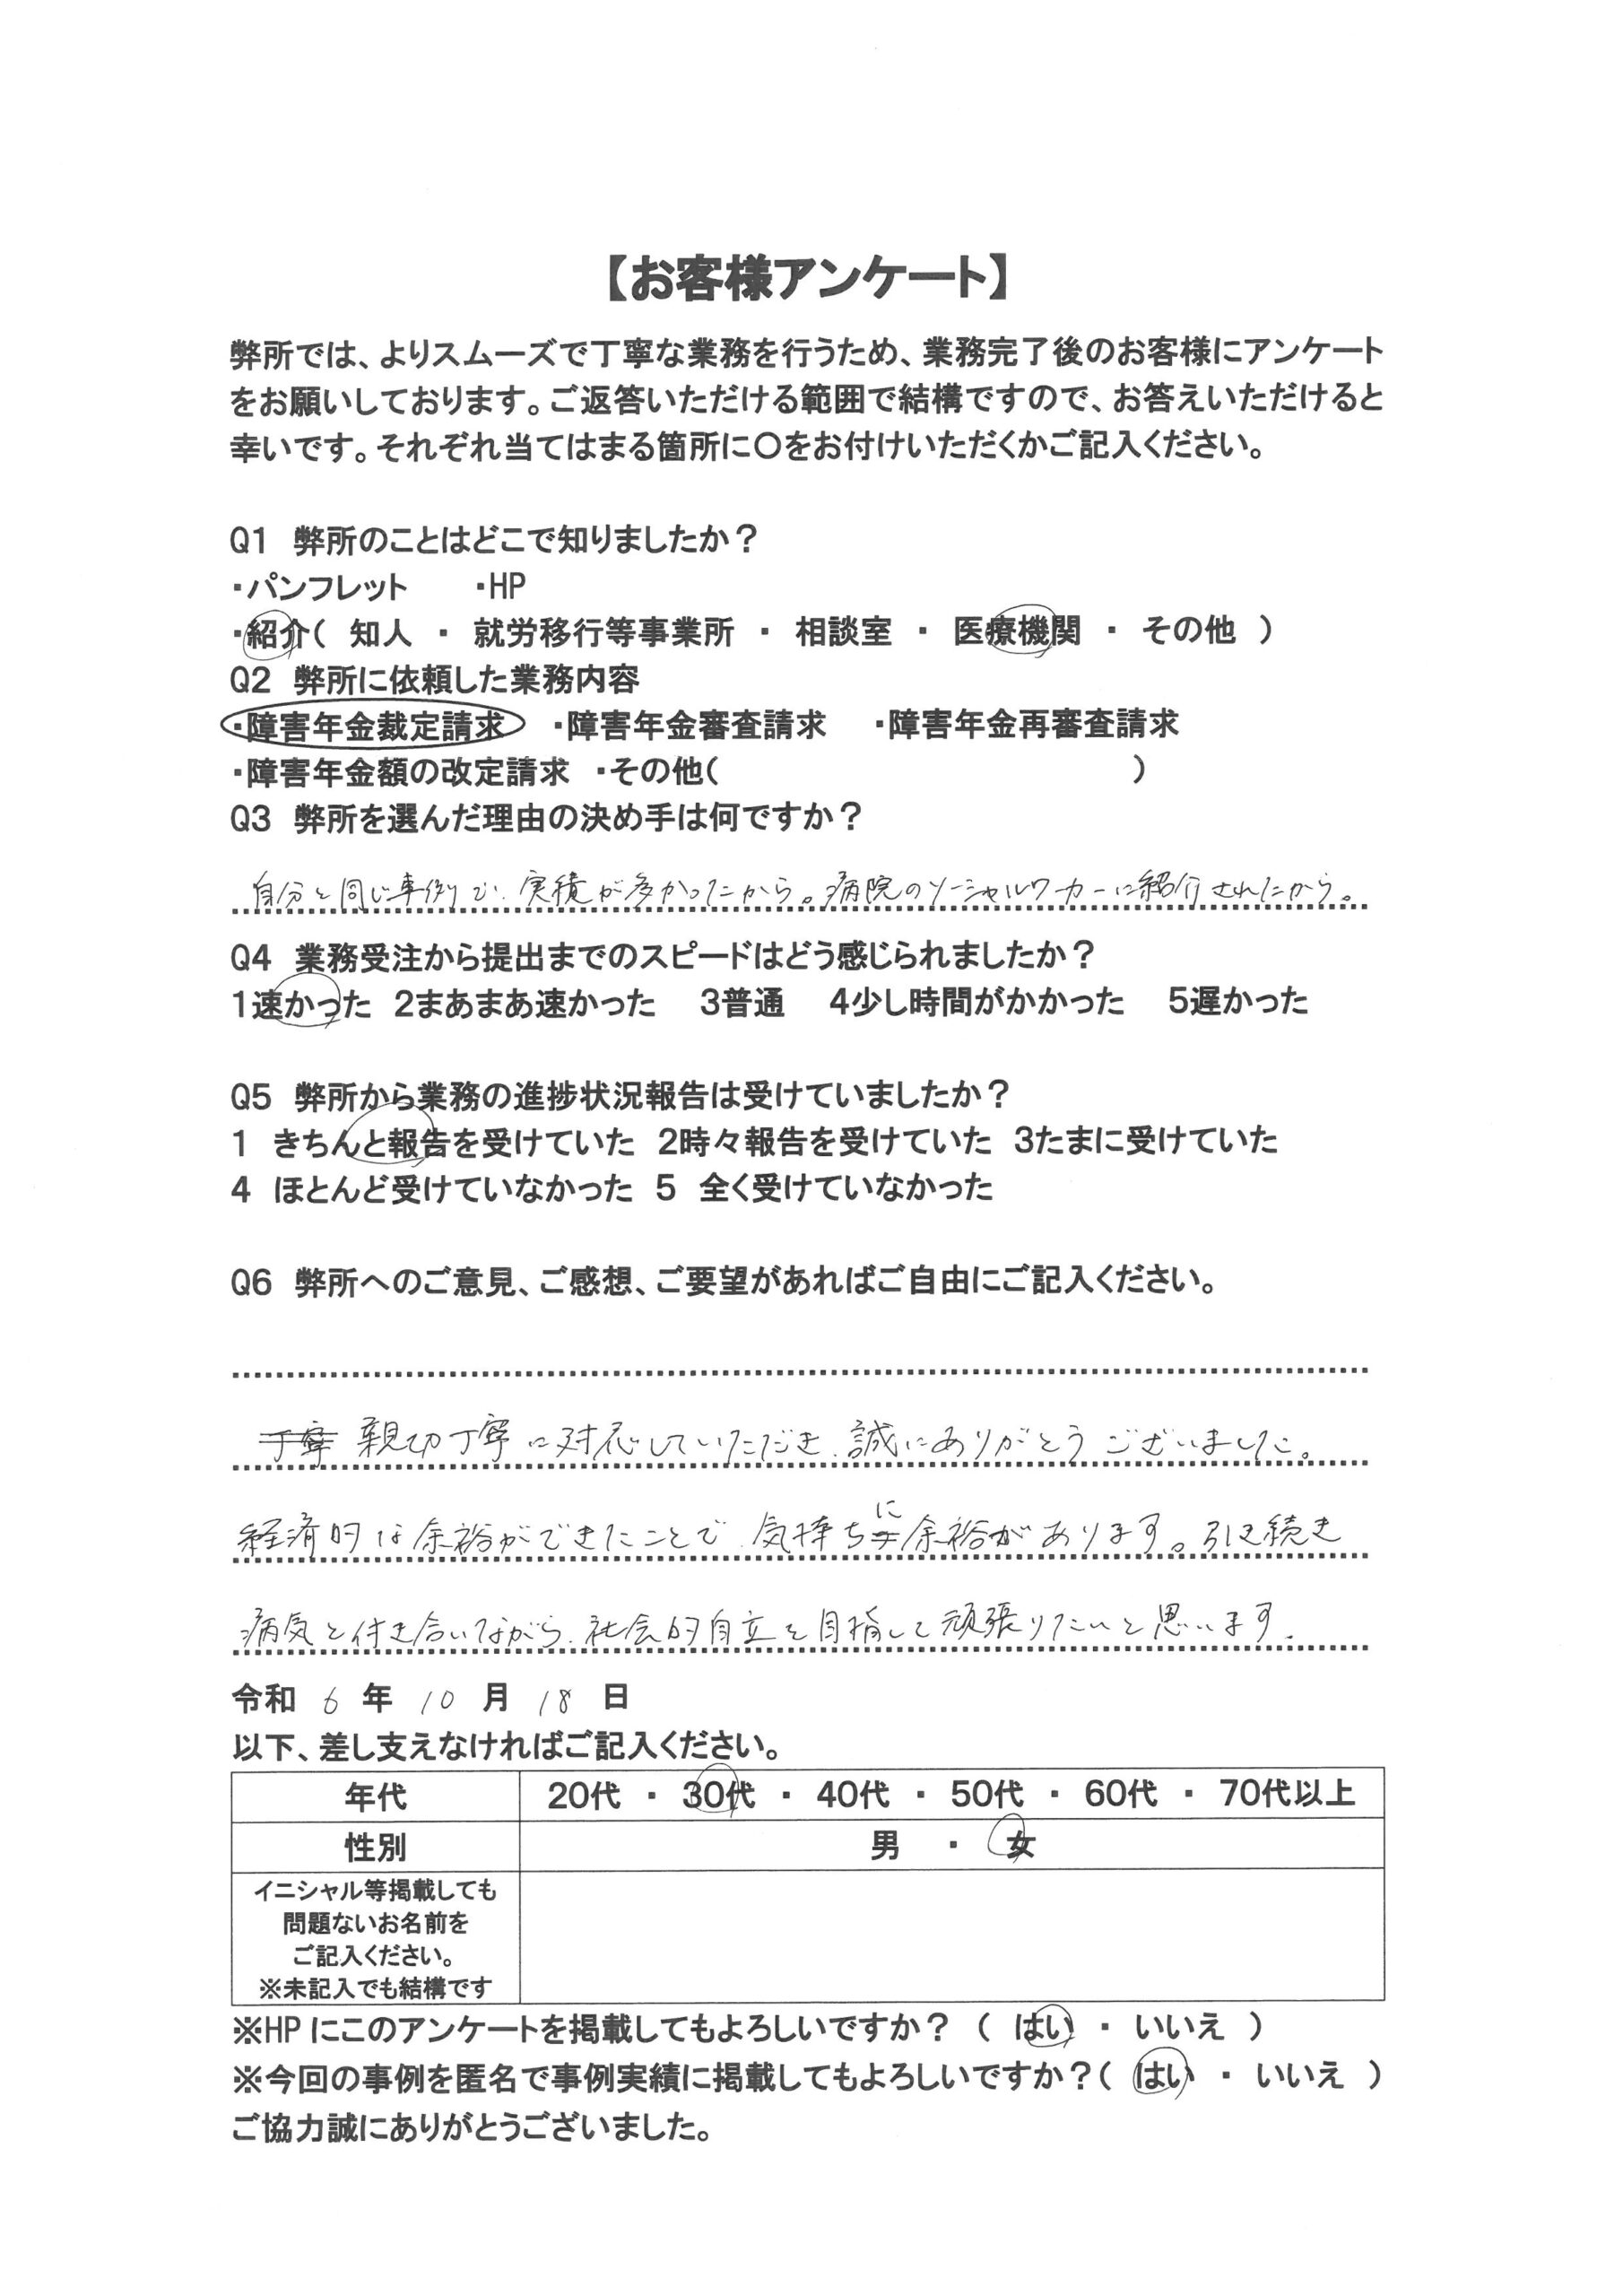 【お客様アンケート】
弊所では、よりスムーズで丁寧な業務を行うため、業務完了後のお客様にアンケート
をお願いしております。ご返答いただける範囲で結構ですので、お答えいただけると
幸いです。それぞれ当てはまる箇所に〇をお付けいただくかご記入ください。
Q1 弊所のことはどこで知りましたか？
・パンフレット ・HP
・紹介（ 知人 ・ 就労移行等事業所 ・ 相談室 ・ 医療機関 ・ その他 ）
Q2 弊所に依頼した業務内容
・障害年金裁定請求 ・障害年金審査請求 ・障害年金再審査請求
・障害年金額の改定請求 ・その他（ ）
Q3 弊所を選んだ理由の決め手は何ですか？
自分と同じ事例で、実績が多かったから。病院のソーシャルワーカーに紹介されたから。
Q4 業務受注から提出までのスピードはどう感じられましたか？
1速かった 2まあまあ速かった 3普通 4少し時間がかかった 5遅かった
Q5 弊所から業務の進捗状況報告は受けていましたか？
1 きちんと報告を受けていた 2時々報告を受けていた 3たまに受けていた
4 ほとんど受けていなかった 5 全く受けていなかった
Q6 弊所へのご意見、ご感想、ご要望があればご自由にご記入ください。
丁寧 親切丁寧に対応していただき、誠にありがとうございました。
経済的な余裕ができたことで、気持ちに余裕があります。引き続き
病気と付き合いながら、社会的自立を目指して頑張りたいと思います。
令和 6 年 10 月 18 日
以下、差し支えなければご記入ください。
年代 20代 ・ 30代 ・ 40代 ・ 50代 ・ 60代 ・ 70代以上
性別 男 ・ 女
イニシャル等掲載しても
問題ないお名前を
ご記入ください。
※未記入でも結構です
※HPにこのアンケートを掲載してもよろしいですか？（ はい ・ いいえ ）
※今回の事例を匿名で事例実績に掲載してもよろしいですか？（ はい ・ いいえ ）
ご協力誠にありがとうございました。